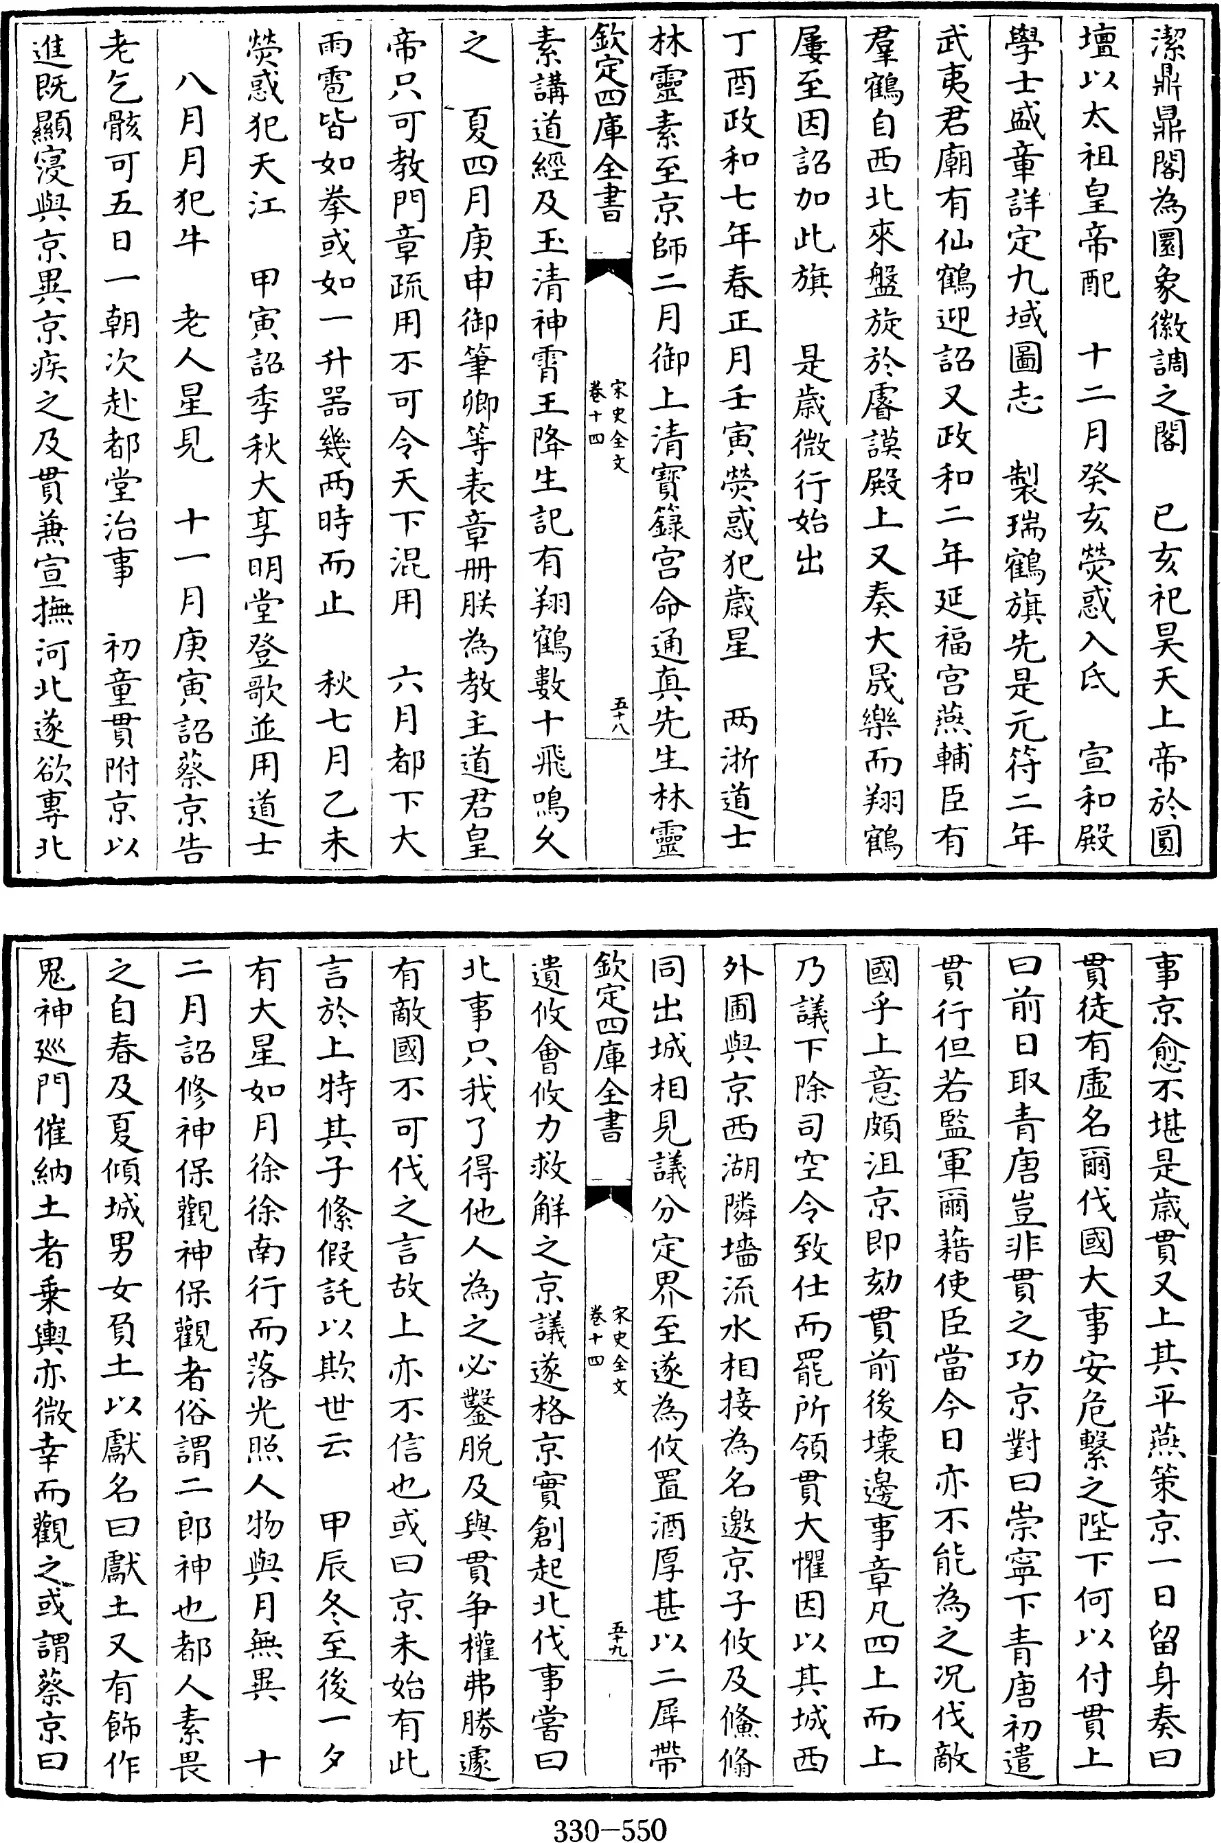 潔鼎鼎閣為圜象徽調之閣　已亥祀昊天上帝於圓
壇以太祖皇帝配　十二月癸亥熒惑入氐　宣和殿
學士盛章詳定九域圖志　製瑞鶴旗先是元符二年
武夷君廟有仙鶴迎詔又政和二年延福宮燕輔臣有
羣鶴自西北來盤旋於睿謨殿上又奏大晟樂而翔鶴
屢至因詔加此旗　是歲微行始出
丁酉政和七年春正月壬寅熒惑犯歲星　兩浙道士
林靈素至京師二月御上清寶籙宮命通真先生林靈
欽定四庫全書
宋史全文
卷十四
五十八
素講道經及玉清神霄王降生記有翔鶴數十飛鳴久
之　夏四月庚申御筆卿等表章冊朕為教主道君皇
帝只可教門章疏用不可令天下混用　六月都下大
雨雹皆如拳或如一升器幾兩時而止　秋七月乙未
熒惑犯天江　甲寅詔季秋大享明堂登歌並用道士
八月月犯牛　老人星見　十一月庚寅詔蔡京告
老乞骸可五日一朝次赴都堂治事　初童貫附京以
進既顯寖與京異京疾之及貫兼宣撫河北遂欲專北
事京愈不堪是歲貫又上其平燕策京一日留身奏曰
貫徒有虛名爾伐國大事安危繫之陛下何以付貫上
曰前日取青唐豈非貫之功京對曰崇寧下青唐初遣
貫行但若監軍爾藉使臣當今日亦不能為之况伐敵
國乎上意頗沮京即劾貫前後壞邊事章凡四上而上
乃議下除司空令致仕而罷所領貫大懼因以其城西
外圃與京西湖隣墻流水相接為名邀京子攸及鯈翛
同出城相見議分定界至遂為攸置酒厚甚以二犀帶
欽定四庫全書
宋史全文
卷十四
五十九
遺攸會攸力救解之京議遂格京實創起北伐事嘗曰
北事只我了得他人為之必鑿脱及與貫争權弗勝遽
有敵國不可伐之言故上亦不信也或曰京未始有此
言於上特其子絛假託以欺世云　甲辰冬至後一夕
有大星如月徐徐南行而落光照人物與月無異　十
二月詔修神保觀神保觀者俗謂二郎神也都人素畏
之自春及夏傾城男女負土以獻名曰獻土又有飾作
鬼神廵門催納土者乗輿亦微幸而觀之或謂蔡京曰
330-550